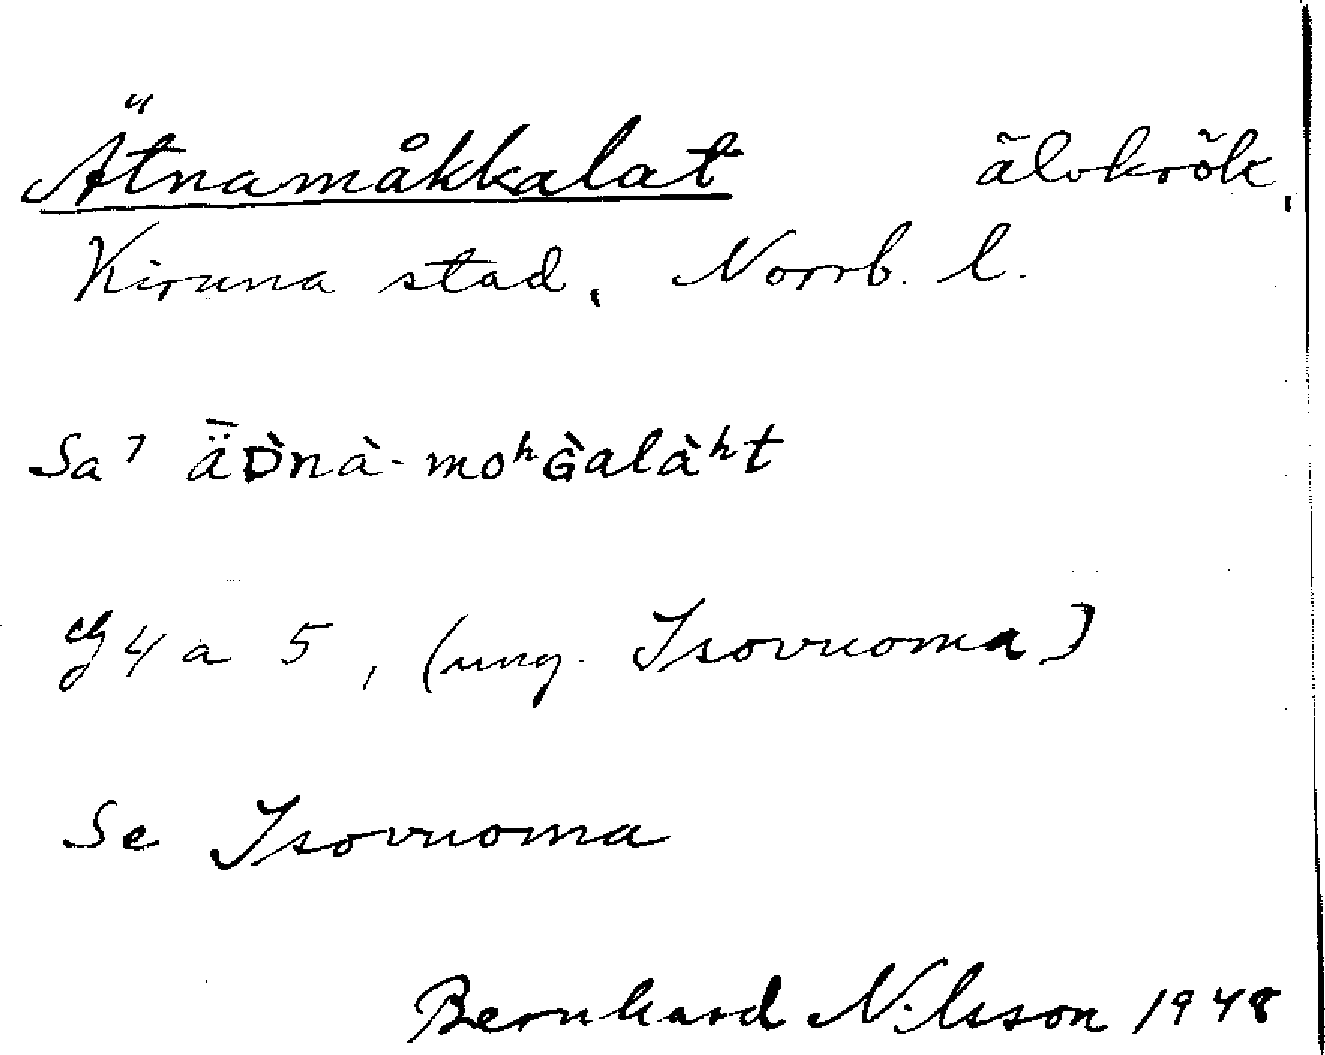 Ätnamåkkalat älvkrök,
Kiruna stad, Norrb. l.
Sa⁷ ǟD̀nà-moʰG̀alàʰt
G4a 5, (ung. Isovuoma)
Se Isovuoma
Bernhard Nilsson 1948